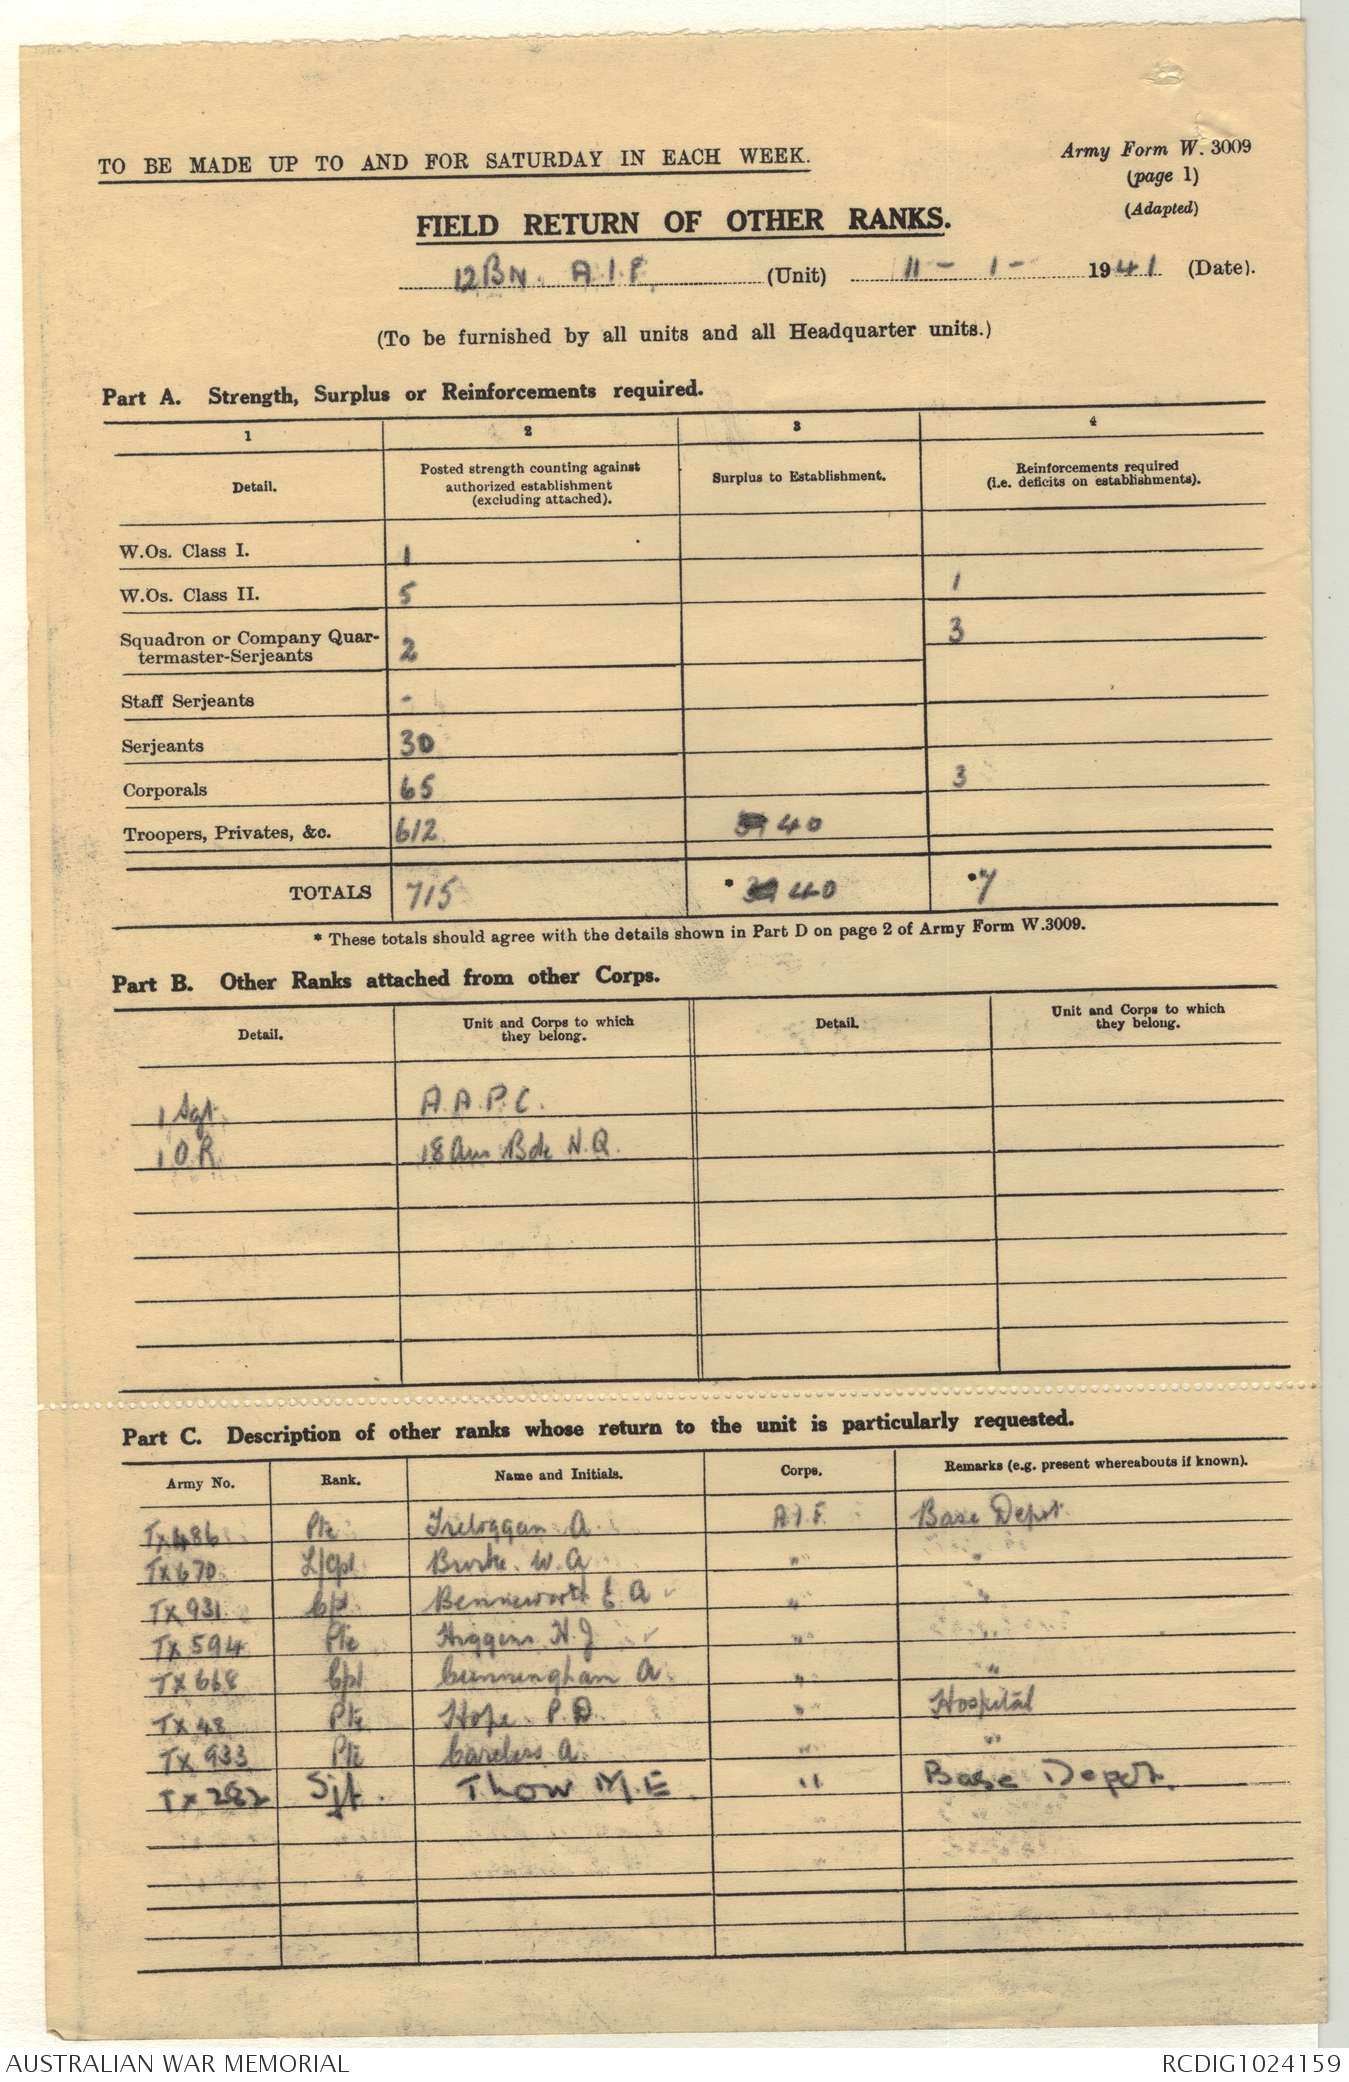 TO BE MADE UP TO AND FOR SATURDAY IN EACH WEEK.
Army Form W. 3009
(page 1)
(Adapted)
FIELD RETURN OF OTHER RANKS.
12 BN. A.I.F. (Unit) 11 - 1 - 1941 (Date).
(To be furnished by all units and all Headquarter units.)
Part A. Strength, Surplus or Reinforcements required.
1 2 3 4
Detail.
Posted strength counting against
authorized establishment
(excluding attached).
Surplus to Establishment.
Reinforcements required
(i.e. deficits on establishments).
W.Os. Class I. 1
W.Os. Class II. 5 1
Squadron or Company Quar-
termaster-Serjeants 2 3
Staff Serjeants -
Serjeants 30
Corporals 65 3
Troopers, Privates, &c. 612 39 40
TOTALS 715 * 39 40 * 7
* These totals should agree with the details shown in Part D on page 2 of Army Form W.3009.
Part B. Other Ranks attached from other Corps.
Detail.
Unit and Corps to which
they belong.
Detail.
Unit and Corps to which
they belong.
1 Sgt. A.A.P.C.
1 O.R. 18 Aus Bde H.Q.
Part C. Description of other ranks whose return to the unit is particularly requested.
Army No. Rank. Name and Initials. Corps. Remarks (e.g. present whereabouts if known).
TX486 Pte Treloggan A. A.I.F. Base Depot.
TX670 L/Cpl Burke. W.A " "
TX931 Cpl Benneworth E A " "
TX594 Pte Higgins H.J " "
TX668 Cpl Cunningham A. " "
TX48 Pte Hope. P.D. " Hospital
TX933 Pte Careless A. " "
TX282 Sjt. Thow M.E. " Base Depot.
AUSTRALIAN WAR MEMORIAL
RCDIG1024159